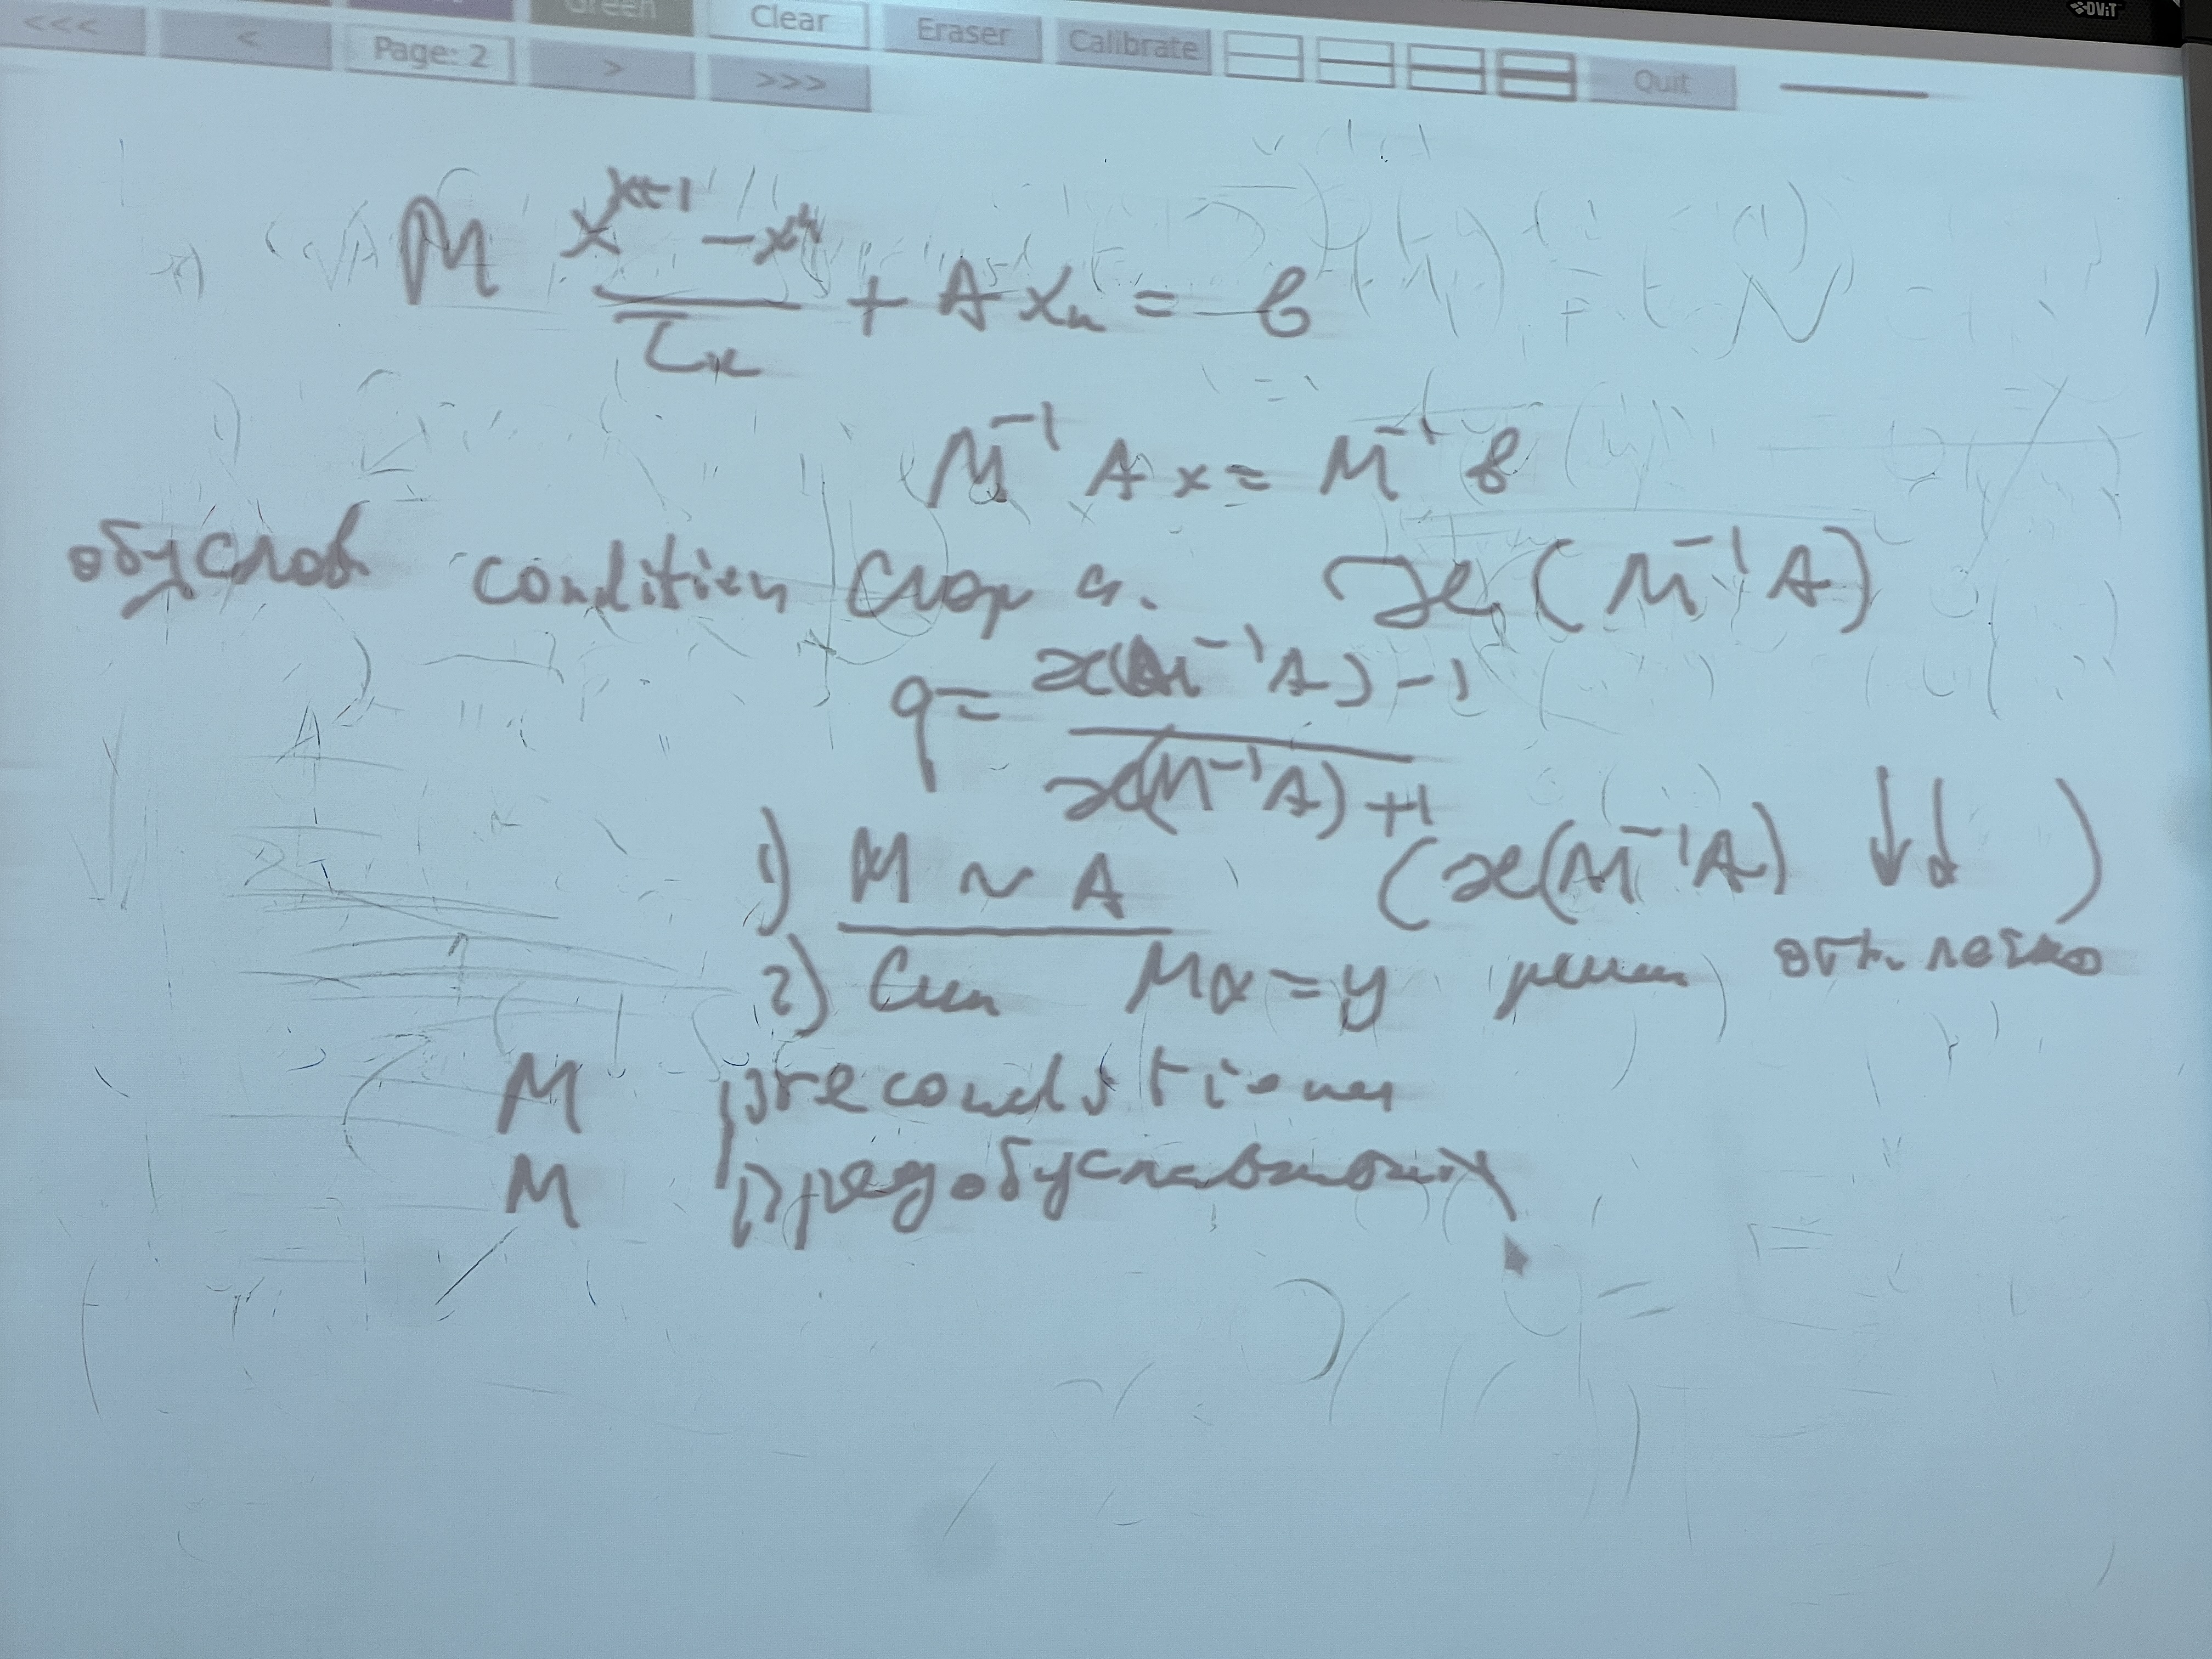 Green Clear Eraser Calibrate Quit
<<< < Page: 2 > >>>
DViT
M (x^{k+1} - x^k) / τ_k + A x_k = b
M^{-1} A x = M^{-1} b
обуслов condition æ (M^{-1} A)
q = (æ(M^{-1} A) - 1) / (æ(M^{-1} A) + 1)
1) M ~ A (æ(M^{-1} A) ↓↓)
2) Сис Mx = y решен отн. легко
M preconditioner
M предобуславливатель